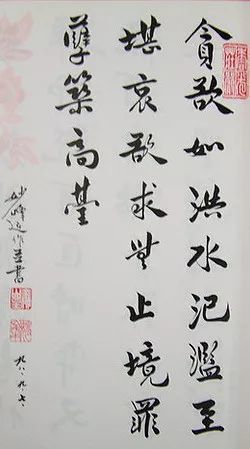 貪欲如洪水氾濫至
堪哀欲求無止境罪
孽築高臺
妙峰造作並書
九八.九.七.